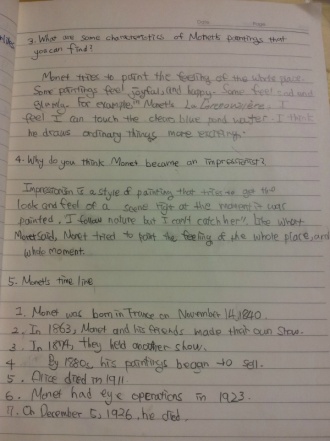 Date Page
3. What are some characteristics of Monet's paintings that
you can find?
Monet tries to paint the feeling of the whole place.
Some paintings feel joyful, and happy. Some feel sad and
gloomy. For example, in Monet's La Grenouillère, I
feel I can touch the clean blue pond water. I think
he draws ordinary things more exciting.
4. Why do you think Monet became an impressionist?
Impressionism is a style of painting that tries to get the
look and feel of a scene right at the moment it was
painted. I follow nature but I can't catch her". Like what
Monet said, Monet tried to paint the feeling of the whole place, and
whole moment.
5. Monet's time line
1. Monet was born in France on November 14, 1840.
2. In 1863, Monet and his friends made their own show.
3. In 1874, they held another show.
4 By 1880s, his paintings began to sell.
5. Alice died in 1911.
6. Monet had eye operations in 1923.
7. On December 5, 1926, he died.